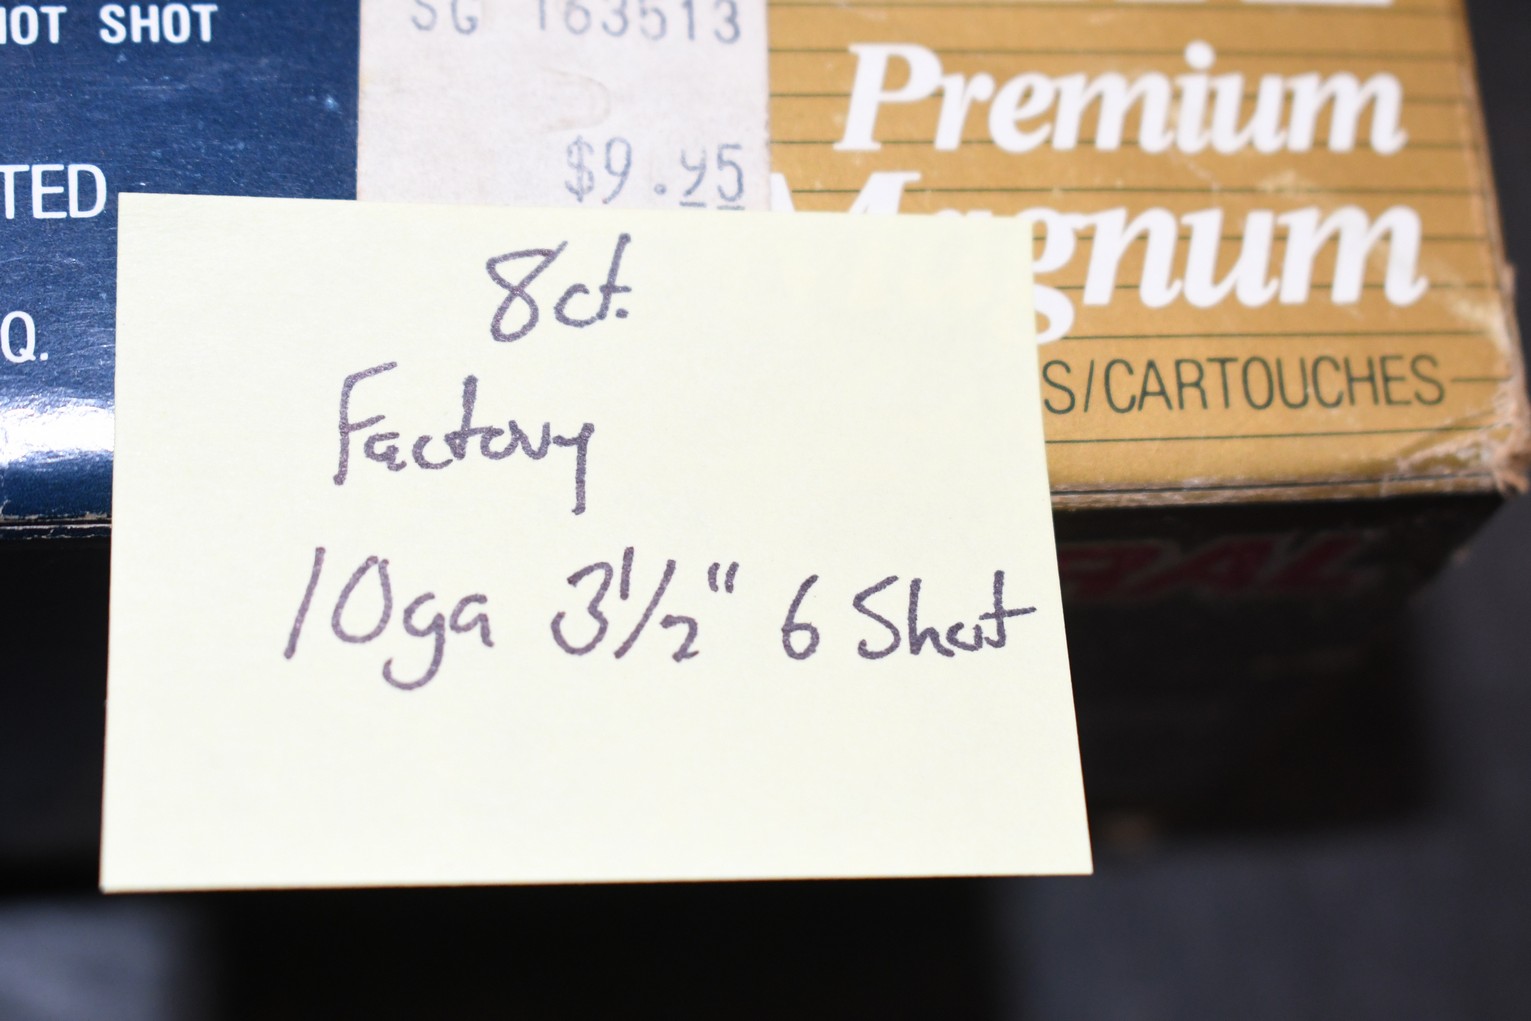 SHOT
SG 163513
$9.95
TED
Q.
Premium
Magnum
S/CARTOUCHES
8ct.
Factory
10ga 3 1/2" 6 Shot